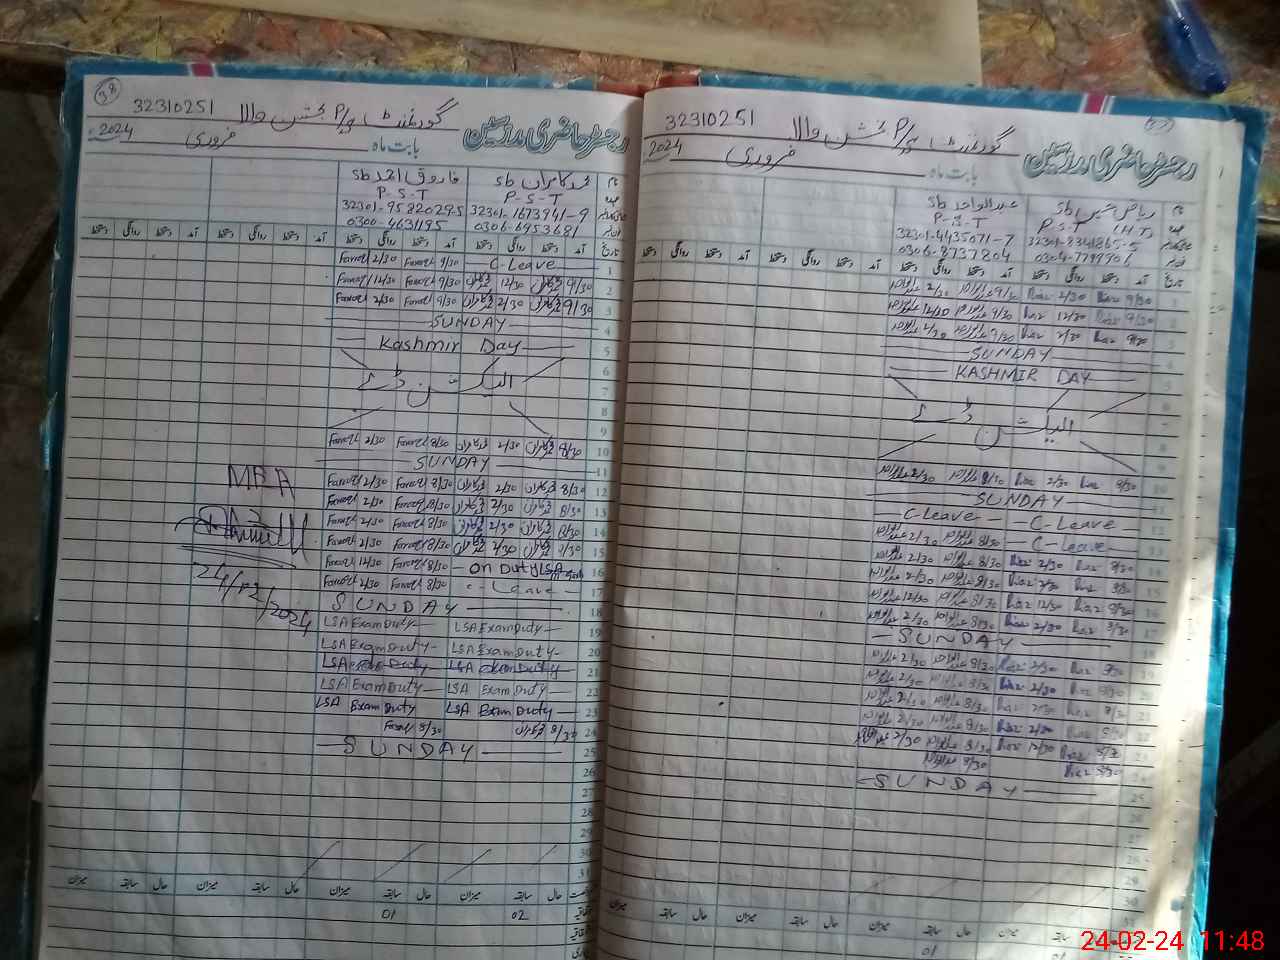 38
32310251 گورنمنٹ P/S بخش والا
رجسٹر حاضری مدرسین
2024 فروری بابت ماہ
فاروق احمد sb محمد کامران sb نام
P-S-T P-S-T
32301-9582029-5 32301-1673941-9
0300-4631195 0306-6953681
دستخط روانگی دستخط آمد دستخط روانگی دستخط آمد دستخط روانگی دستخط آمد دستخط روانگی دستخط آمد تاریخ
Farooq 2/30 Farooq 9/30 C-Leave 1
Farooq 12/30 Farooq 9/30 کامران 12/30 کامران 9/30 2
Farooq 2/30 Farooq 9/30 کامران 2/30 کامران 9/30 3
SUNDAY 4
Kashmir Day 5
6
الیکشن ڈے 7
8
9
Farooq 2/30 Farooq 8/30 کامران 2/30 کامران 8/30 10
SUNDAY 11
MEA
Farooq 2/30 Farooq 8/30 کامران 2/30 کامران 8/30 12
Farooq 2/30 Farooq 8/30 کامران 2/30 کامران 8/30 13
Farooq 2/30 Farooq 8/30 کامران 2/30 کامران 8/30 14
Farooq 2/30 Farooq 8/30 کامران 2/30 کامران 8/30 15
Farooq 12/30 Farooq 8/30 on Duty LSA 16
24/02/2024
Farooq 2/30 Farooq 8/30 C-Leave 17
SUNDAY 18
LSA Exam Duty LSA Exam Duty 19
LSA Exam Duty LSA Exam Duty 20
LSA Exam Duty LSA Exam Duty 21
LSA Exam Duty LSA Exam Duty 22
LSA Exam Duty LSA Exam Duty 23
Farooq 8/30 کامران 8/30 24
SUNDAY 25
26
27
28
29
30
31
میزان سابقہ حال میزان سابقہ حال میزان سابقہ حال میزان سابقہ حال
01 02
32310251 گورنمنٹ P/S بخش والا
رجسٹر حاضری مدرسین
2024 فروری بابت ماہ
عبدالواحد sb ریاض حسین sb نام
P-S-T P.S.T (H.T)
32301-4435071-7 32301-8341865-5
0306-8737804 0304-7799501
دستخط روانگی دستخط آمد دستخط روانگی دستخط آمد دستخط روانگی دستخط آمد دستخط روانگی دستخط آمد تاریخ
عبدالواحد 2/30 عبدالواحد 9/30 Riaz 2/30 Riaz 9/30 1
عبدالواحد 12/30 عبدالواحد 9/30 Riaz 12/30 Riaz 9/30 2
عبدالواحد 2/30 عبدالواحد 9/30 Riaz 2/30 Riaz 9/30 3
SUNDAY 4
KASHMIR DAY 5
6
الیکشن ڈے 7
8
9
عبدالواحد 2/30 عبدالواحد 8/30 Riaz 2/30 Riaz 8/30 10
SUNDAY 11
C-Leave C-Leave 12
عبدالواحد 2/30 عبدالواحد 8/30 C-Leave 13
عبدالواحد 2/30 عبدالواحد 8/30 Riaz 2/30 Riaz 8/30 14
عبدالواحد 2/30 عبدالواحد 8/30 Riaz 2/30 Riaz 8/30 15
عبدالواحد 12/30 عبدالواحد 8/30 Riaz 12/30 Riaz 8/30 16
عبدالواحد 2/30 عبدالواحد 8/30 Riaz 2/30 Riaz 8/30 17
SUNDAY 18
عبدالواحد 2/30 عبدالواحد 8/30 Riaz 2/30 Riaz 8/30 19
عبدالواحد 2/30 عبدالواحد 8/30 Riaz 2/30 Riaz 8/30 20
عبدالواحد 2/30 عبدالواحد 8/30 Riaz 2/30 Riaz 8/30 21
عبدالواحد 2/30 عبدالواحد 8/30 Riaz 2/30 Riaz 8/30 22
عبدالواحد 2/30 عبدالواحد 8/30 Riaz 12/30 Riaz 8/30 23
عبدالواحد 8/30 Riaz 8/30 24
SUNDAY 25
27
28
29
30
میزان سابقہ حال میزان سابقہ حال
01 01
24-02-24 11:48